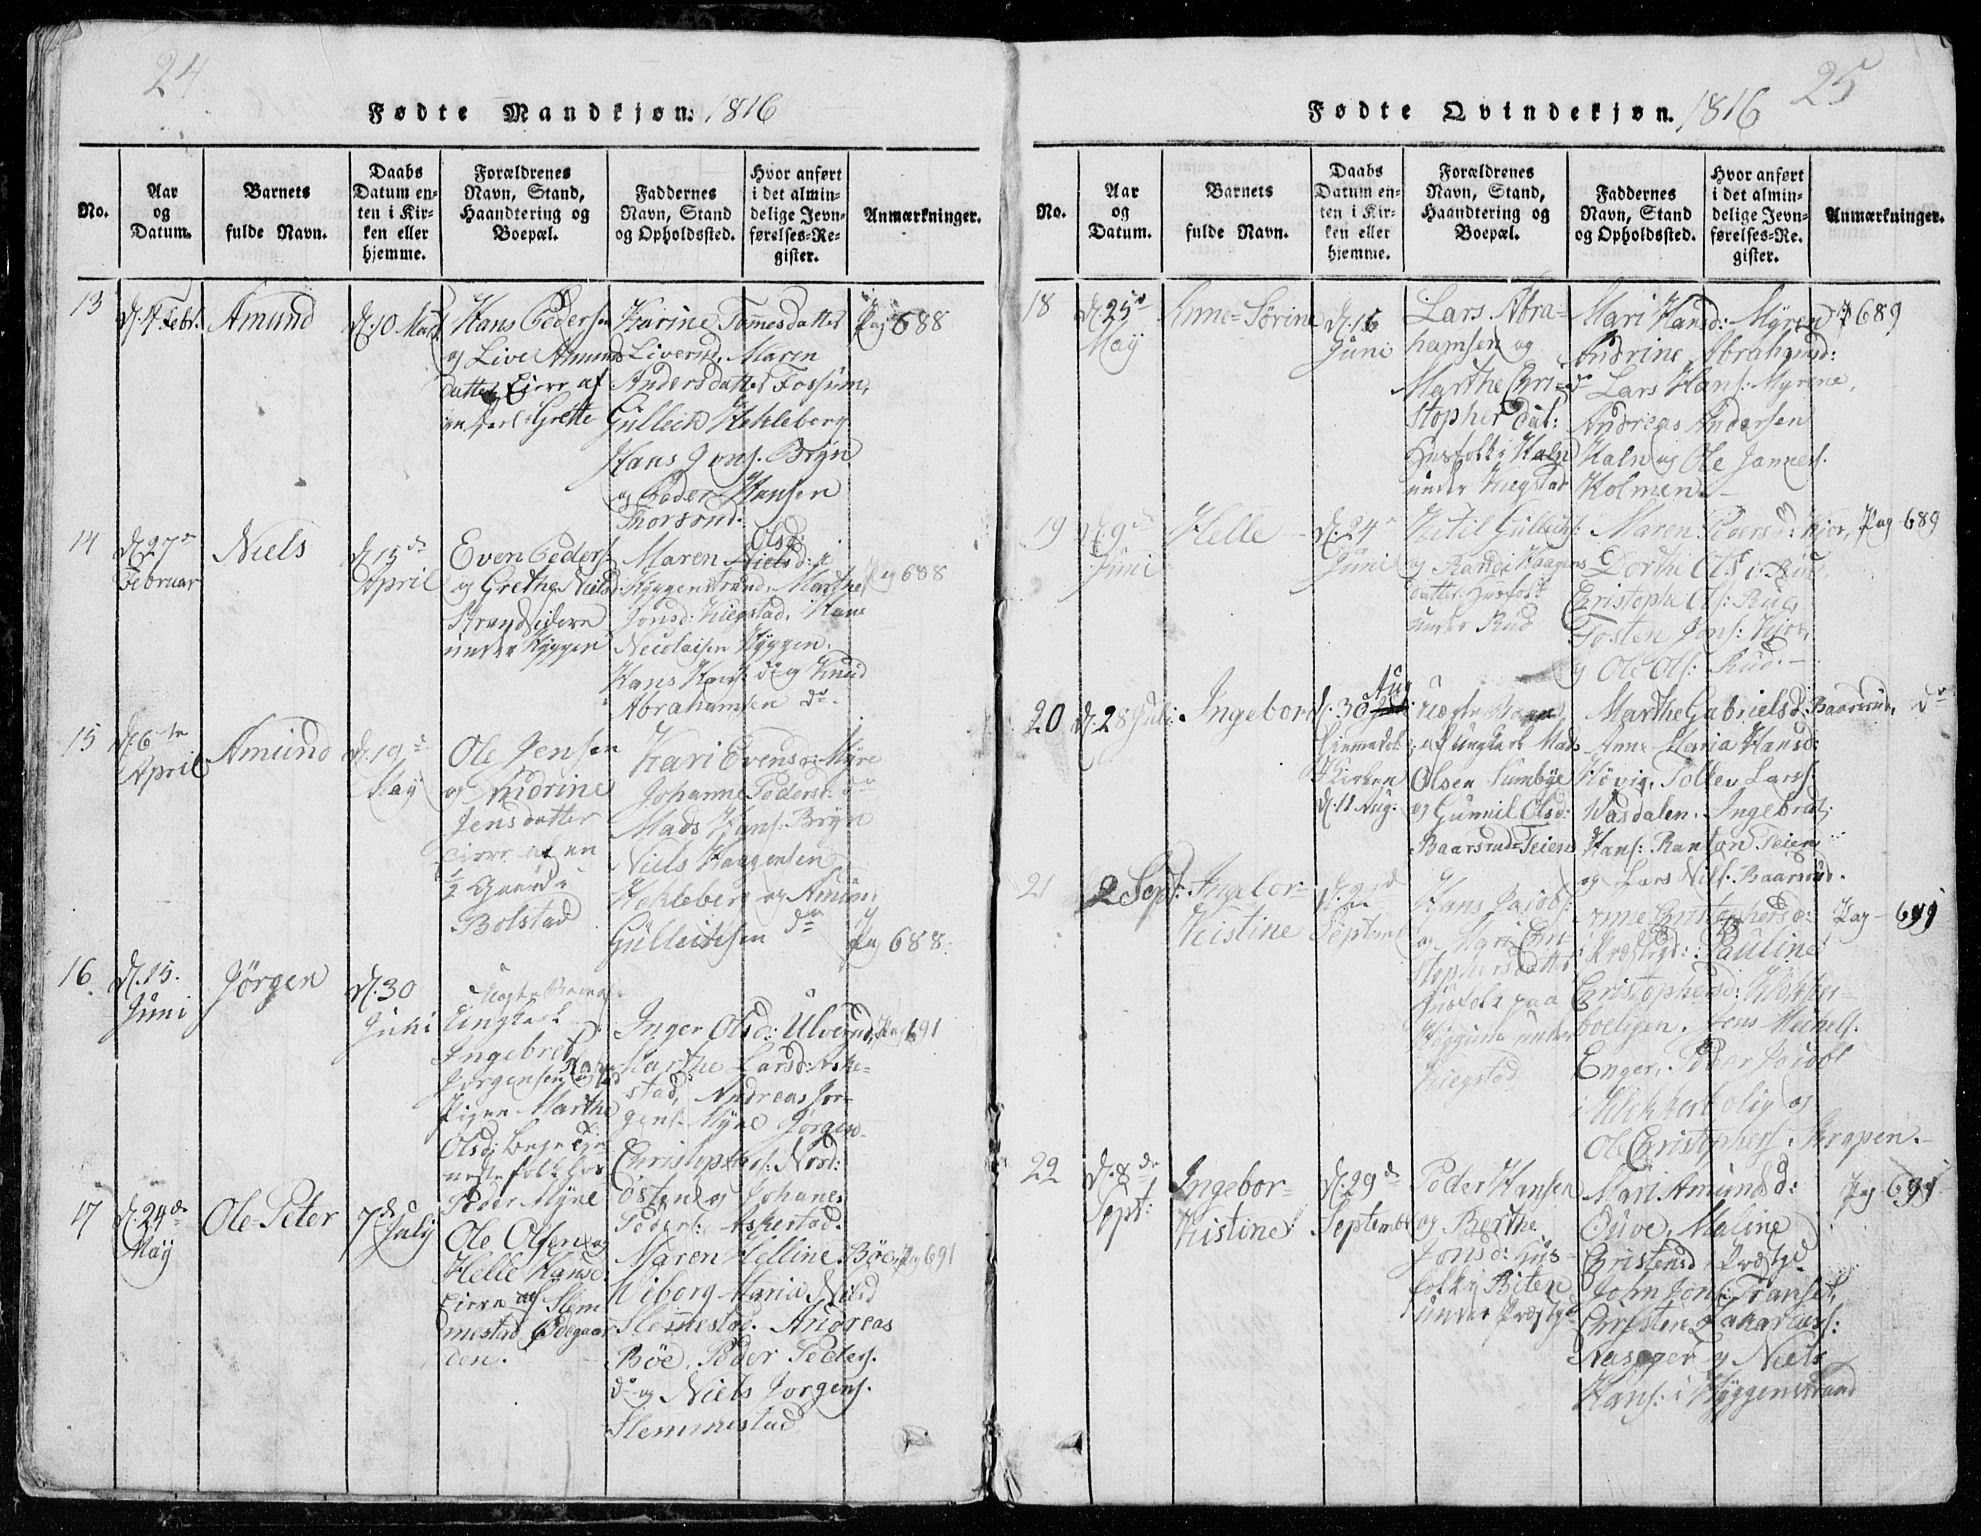 24
Fødte Mandkjøn. 1816
No.
Aar og Datum.
Barnets fulde Navn.
Daabs Datum enten i Kirken eller hjemme.
Forældrenes Navn, Stand, Haandtering og Boepæl.
Faddernes Navn, Stand og Opholdssted.
Hvor anført i det almindelige Jevnførelses-Register.
Anmærkninger.
13
d. 4 Febr.
Amund
d. 10 Marts
Hans Pedersen
og Live Amunds
datter Eiere af
Grette
Karine Tomesdatter
Liverud, Maren
Andersdatter Fossum,
Gulleik Hekleberg
Hans Jons. Brÿn
og Peder Hansen
Thorsrud.
Pag 688
14
d. 27de
Februar
Niels
d. 15de
April
Even Peders:
og Grethe Nielsd:
Strandsidere
under Hÿggen
Olsd:
Maren Nielsd: i
Hÿggenstrand, Marthe
Jonsd: Kiegstad, Hans
Nicolaisen Hÿggen,
Hans Hans: do og Knud
Abrahamsen do.
Pag 688
15
d. 6te
April
Amund
d. 19de
May
Ole Jensen
og Andrine
Jensdatter
Eiere af en
1/2 Gaard i
Bolstad
Kari Evensd: Mÿre
Johanne Pedersd: do
Mads Hans: Brÿn
Niels Haagensen
Hekleberg og Amun
Gulleichsen do
Pag 688.
16
d. 15.
Juni
Jørgen
d. 30
Juni
Uægte Barn af
Ungkarl
Ingebret
Jørgensen
Pigen Marthe
Olsd: begge Tie-
nestefolk hos
Peder Mÿre
Inger Olsd: Ulverud,
Marthe Larsd: Aske-
stad, Andreas Jør-
gens. Mÿre Jørgen
Christophers: Nord:
østen og Johanes
Peders: Askestad.
Pag 691
17
d. 24de
Maÿ
Ole Peter
7de Julÿ
Ole Olsen og
Helle Hansd:
Eiere af Slem
mestad Ødegaar
den.
Maren Helline Böe,
Wiborg Maria Nielsd
Slemmestad. Andreas
Böe, Peder Peders.
do og Niels Jørgens.
Slemmestad
Pag 691
25
Fødte Qvindekjøn. 1816
No.
Aar og Datum.
Barnets fulde Navn.
Daabs Datum enten i Kirken eller hjemme.
Forældrenes Navn, Stand, Haandtering og Boepæl.
Faddernes Navn, Stand og Opholdssted.
Hvor anført i det almindelige Jevnførelses-Register.
Anmærkninger.
18
d. 25de
Maÿ
Anne-Sørine
d. 16
Juni
Lars Abra-
hamsen og
Marthe Chri-
stopher dat:
Husfolk i Haln
under Kiegstad
Mari Hansd: Mÿren
Andrine Abrahamsd:
do Lars Hans: Mÿrene,
Andreas Andersen
Haln og Ole Jannes.
Holmen.
P 689
19
d. 9de
Juni
Helle
d. 24de
Juni
Ketil Gulleichs:
og Randi Haagens
datter Husfolk
under Rud
Maren Pedersd: Kjos,
Dorthe Olsd: Rud,
Christophe Ols: Rud,
Tosten Jons: Kjos,
og Ole Ols: Rud.
Pag 689
20
d. 28 Juli
Ingebor
d. 30 Aug
Hiemedøbt
i Kirken
d. 11 Aug:
Uægte Barn
af Ungkarl Mads
Olsen Sundbÿe
og Gunnil Olsd:
Baarsrud-Teien
Marthe Gabrielsd: Baarsrud,
Anne Maria Hansd:
Høvig, Tollev Larss:
Wasdalen, Ingebret
Hans: Ranton Teien
og Lars Niels: Baarsrud.
do
21
2 Sept:
Ingebor-
Kistine
d. 22de
Septemb
Hans Jacobs:
og Mari Chri
stophersdatter
Husfolk paa
Høggum under
Kiegstad
Anne Christophersd:
i Præstegd: Pauline
Christophersd: Klokker-
boeligen, Jens Michels.
Enger, Peder Jacobs
i Klokkerbolig og
Ole Christophers. Skrapen.
Pag 691
22
d. 8de
Sept:
Ingebor-
Kistine
d. 29de
September
Peder Hansen
og Berthe
Jonsd: Hus-
folk i Biten
under Præstgd
Mari Amundsd:
Duve, Maline
Christensd Præstgd
John Jons: Transet,
Christen Zakariass:
Aasager og Niels
Hans: i Hÿggenstrand
Pag 691